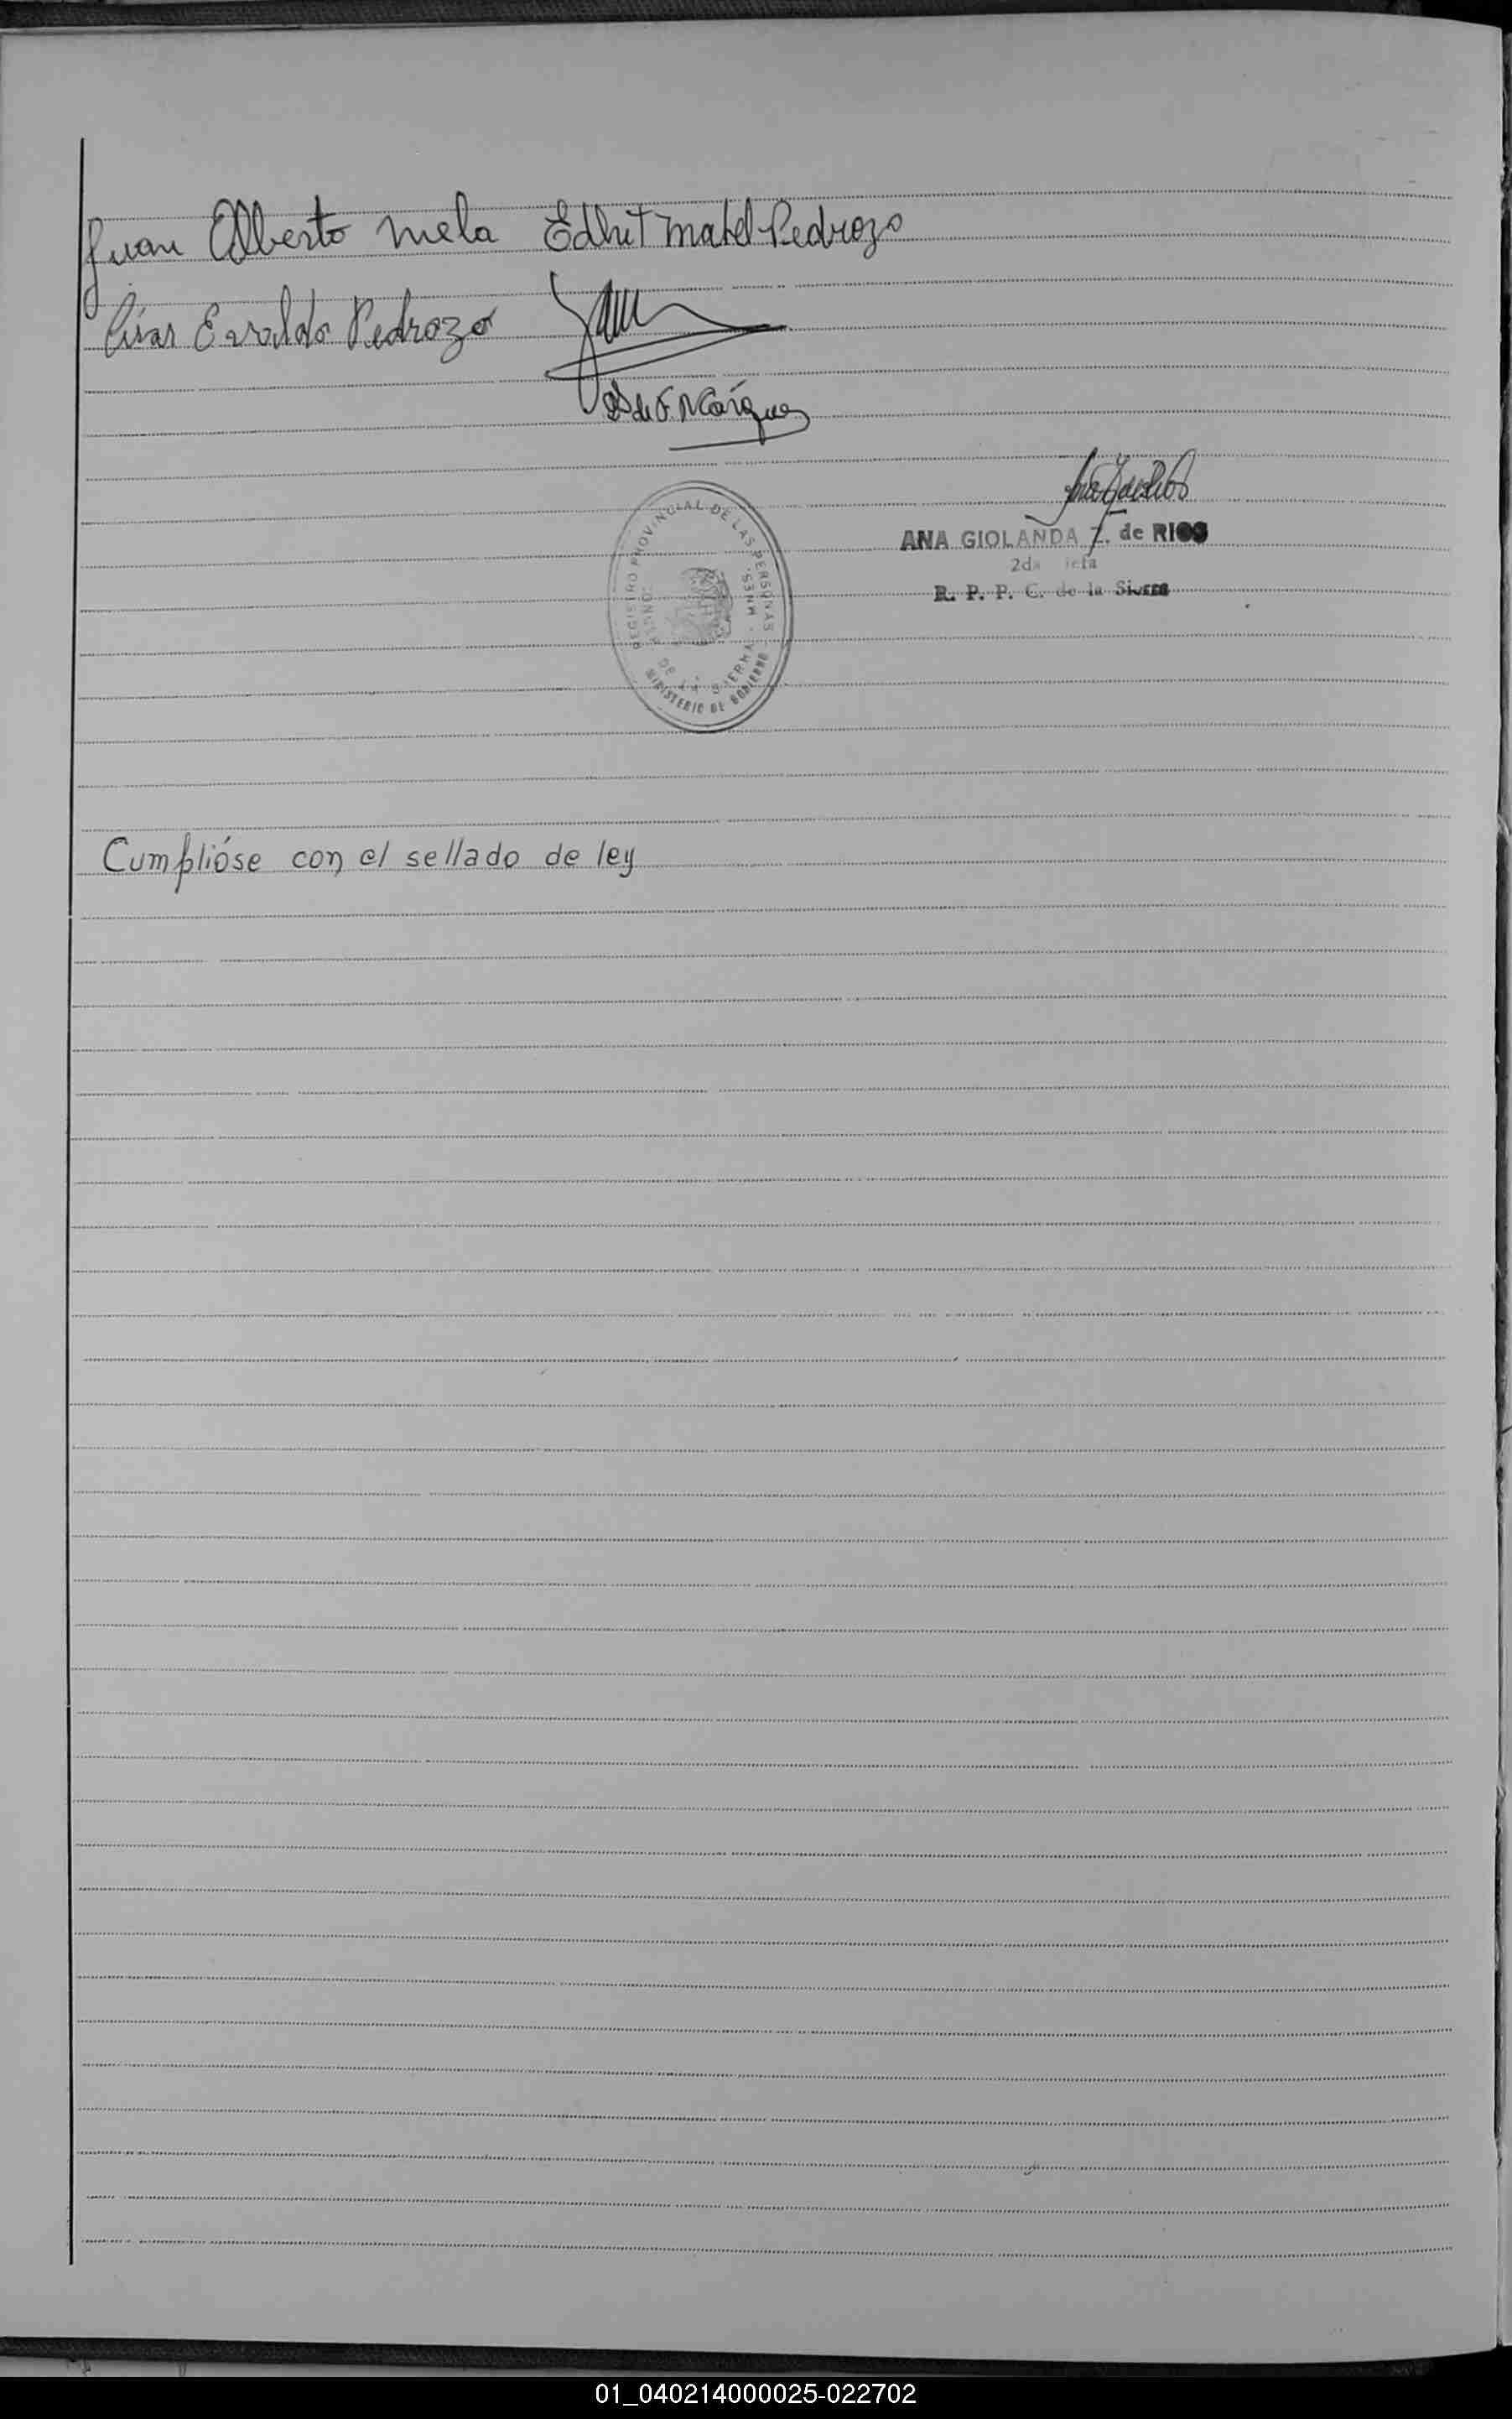 Juan Alberto mela Edhit mabel Pedrozo
Pedrozo
ANA GIOLANDA Z. de RIOS
2da Jefa
R. P. P. C. de la Sierra
REGISTRO PROVINCIAL DE LAS PERSONAS
DE LA SIERRA
MINISTERIO DE GOBIERNO
Cumplióse con el sellado de ley
01_040214000025-022702